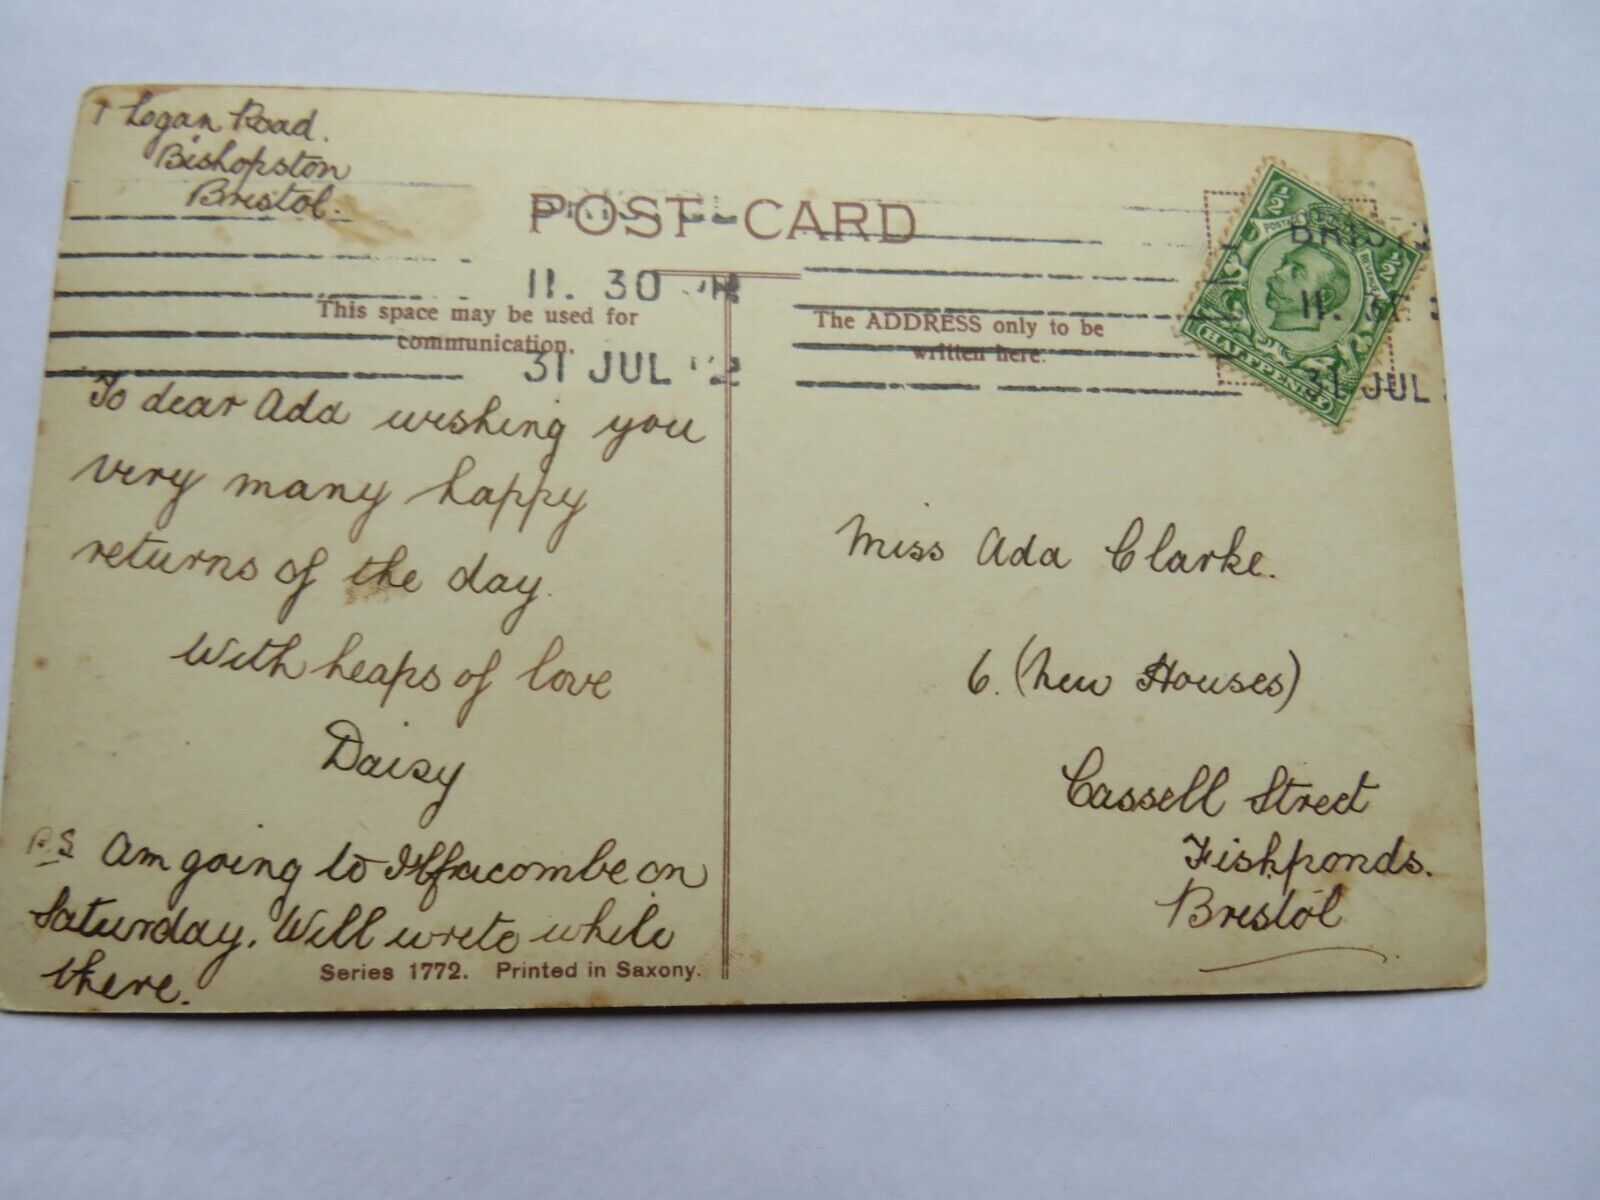 Logan Road.
Bishopston
Bristol.
POST-CARD
BRIS
11. 30
11. 3
31 JUL 12
31 JUL
½ ½
HALFPENNY
This space may be used for
communication.
The ADDRESS only to be
written here.
To dear Ada wishing you
very many happy
returns of the day.
With heaps of love
Daisy
P.S Am going to Ilfracombe on
Saturday. Will write while
there.
Series 1772. Printed in Saxony.
Miss Ada Clarke.
6. (New Houses)
Cassell Street
Fishponds.
Bristol